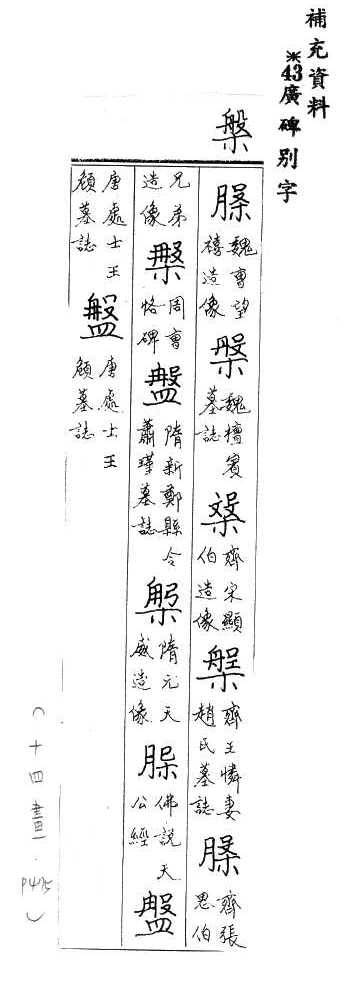 補充資料
※43廣碑別字
槃
魏曹望禧造像
槃 魏檀賓墓誌
齊宋顯伯造像
槃 齊王憐妻趙氏墓誌
齊張思伯
兄弟造像
槃 周曹恪碑
盤 隋新鄭縣令蕭瑾墓誌
隋元天威造像
佛說天公經
盤
唐處士王顏墓誌
盤 唐處士王顏墓誌
(十四畫.P475)